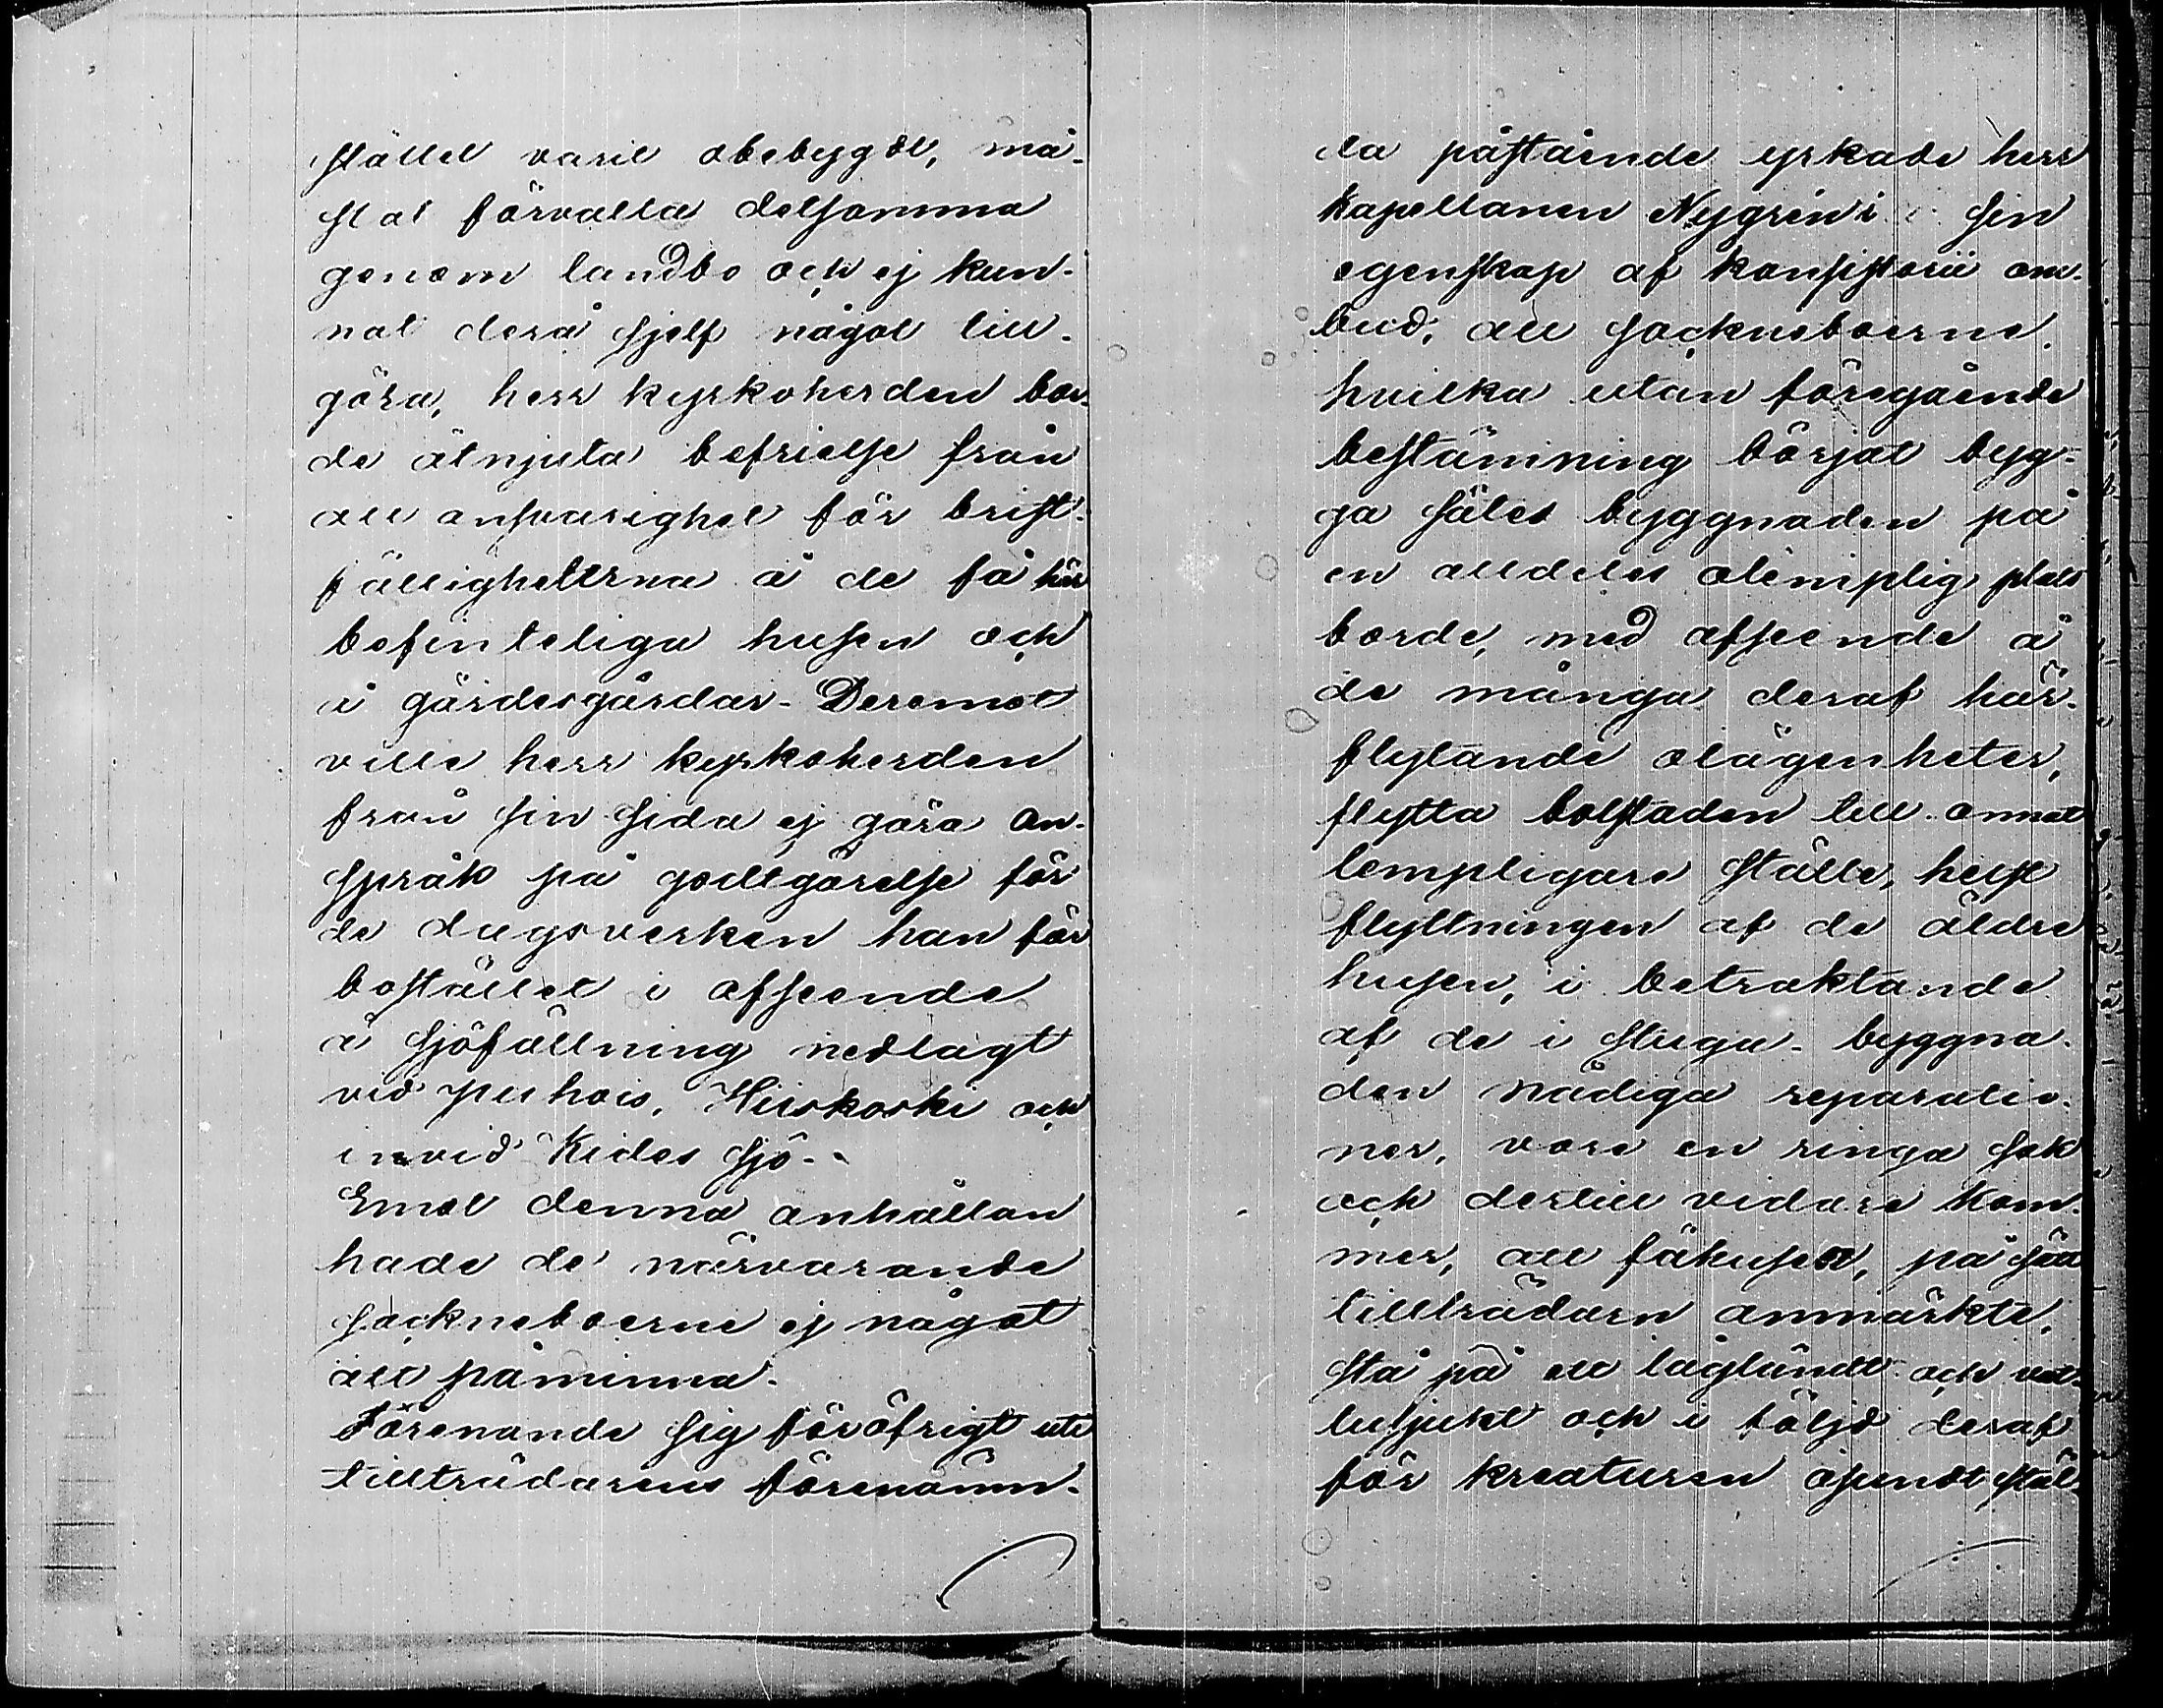 stället varit obebygdt, må-
stat förvalta detsamma
genom landbo och ej kun-
nat derå sjelf något till-
göra, herr kyrkoherden bor-
de åtnjuta befrielse från
all ansvarighet för brist-
fälligheterna å de få här
befinteliga husen och
å gärdesgårdar. Deremot
ville herr kyrkoherden
från sin sida ej göra an-
språk på godtgörelse för
de dagsverken han för
bostället i afseende
å sjöfällning nedlagt
vid Puhois, Hiiskoski och
invid Kides sjö. -
Emot denna anhållan
hade de närvarande
sockneboerne ej något
att påminna.
Förenande sig föröfrigt uti
tillträdarens förenämn-
da påstående yrkade herr
kapellanen Nygrén i sin
egenskap af konsistorii om-
bud, att sockneboerne,
hvilka utan föregående
bestämning börjat byg-
ga sätes byggnaden på
en alldeles olämplig plats
borde, med afseende å
de många deraf här-
flytande olägenheter,
flytta bolstaden till annat
lempligare ställe, helst
flyttningen af de äldre
husen, i betraktande
af de i stuga-byggna-
den nödiga reparatio-
ner, vore en ringa sak
och dertill vidare kom-
mer, att fähusen, på sätt
tillträdarn anmärkte,
stå på ett lågländt och vat-
tusjukt och i följd deraf
för kreaturen osundt stäl-